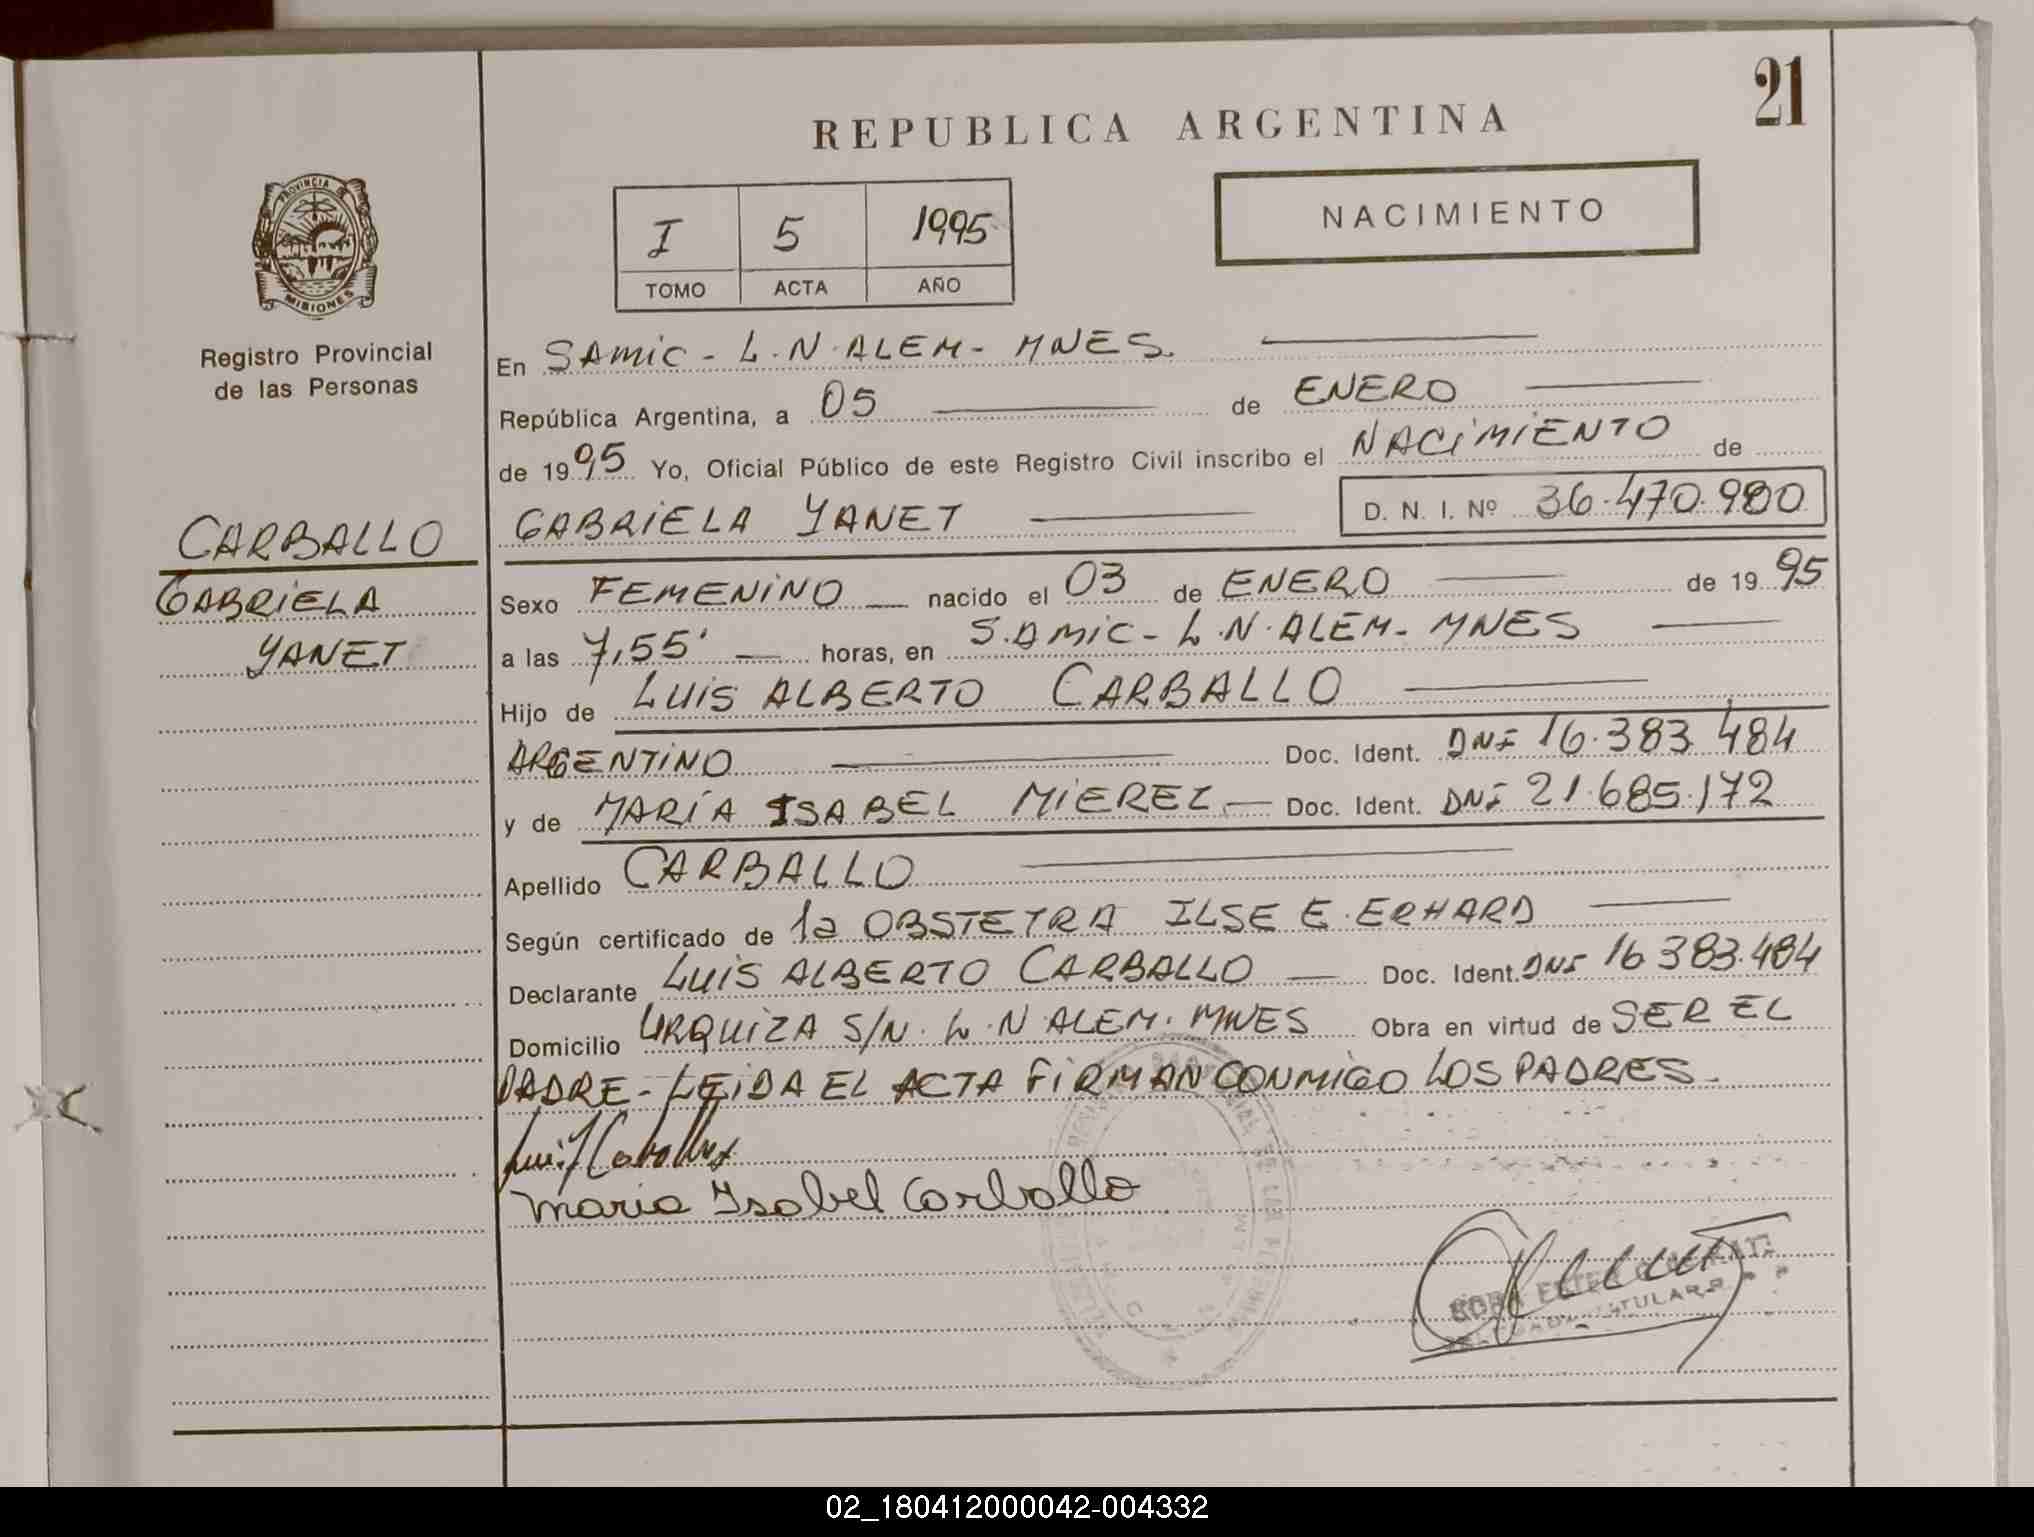 21
REPUBLICA ARGENTINA
PROVINCIA DE
MISIONES
Registro Provincial
de las Personas
I 5 1995
TOMO ACTA AÑO
NACIMIENTO
En SAMIC - L.N.ALEM - MNES.
República Argentina, a 05 de ENERO
de 1995 Yo, Oficial Público de este Registro Civil inscribo el NACIMIENTO de
GABRIELA YANET D. N. I. Nº 36.470.980
CARBALLO
GABRIELA
YANET
Sexo FEMENINO nacido el 03 de ENERO de 1995
a las 7,55' horas, en SAMIC - L.N.ALEM - MNES
Hijo de LUIS ALBERTO CARBALLO
ARGENTINO Doc. Ident. DNI 16.383.484
y de MARÍA ISABEL MIEREZ Doc. Ident. DNI 21.685.172
Apellido CARBALLO
Según certificado de la OBSTETRA ILSE E. ERHARD
Declarante LUIS ALBERTO CARBALLO Doc. Ident. DNI 16 383.484
Domicilio URQUIZA S/N. L.N ALEM. MNES Obra en virtud de SER EL
PADRE - LEIDA EL ACTA FIRMAN CONMIGO LOS PADRES -
Maria Isabel Carballo
TITULAR
02_180412000042-004332